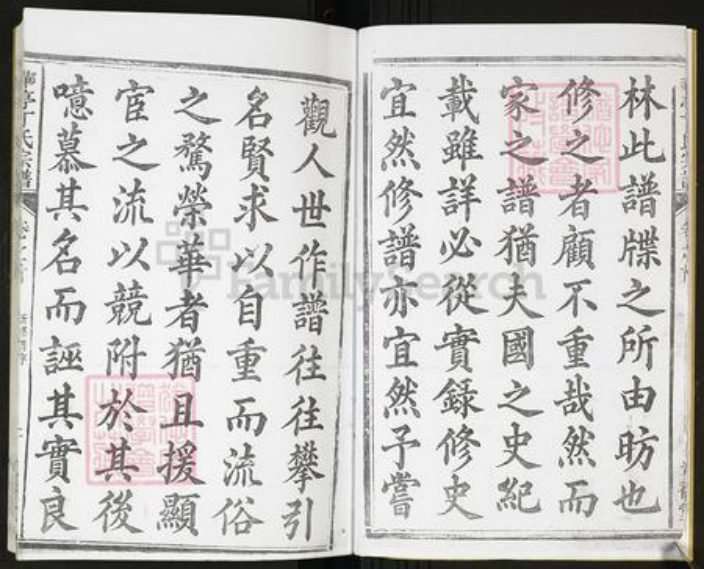 林此譜牒之所由昉也
修之者顧不重哉然而
家之譜猶夫國之史紀
載雖詳必從實錄修史
宜然修譜亦宜然予嘗
觀人世作譜往往攀引
名賢求以自重而流俗
之騖榮華者猶且援顯
宦之流以競附於其後
噫慕其名而誣其實良
丁氏宗譜
FamilySearch